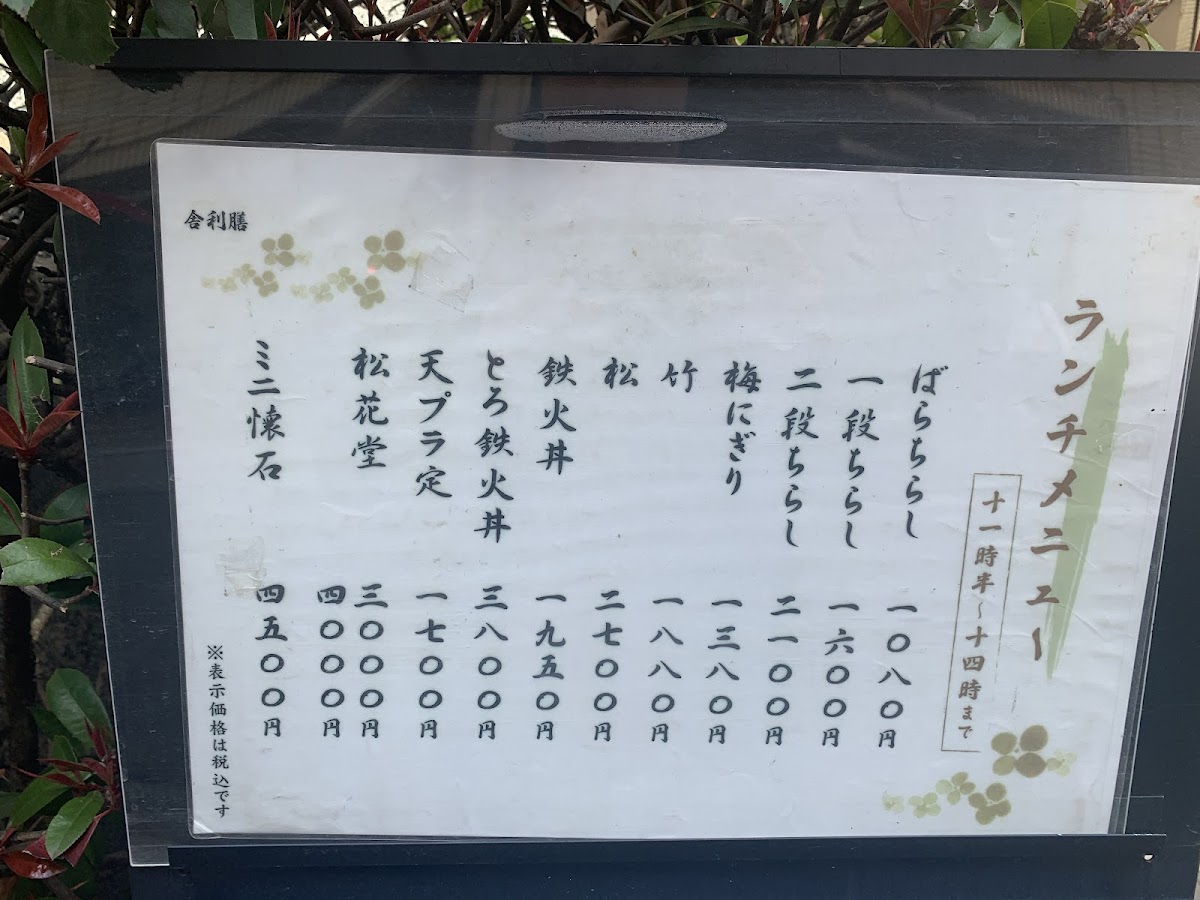 ランチメニュー
十一時半～十四時まで
ばらちらし 一〇八〇円
一段ちらし 一六〇〇円
二段ちらし 二一〇〇円
梅にぎり 一三八〇円
竹 一八八〇円
松 二七〇〇円
鉄火丼 一九五〇円
とろ鉄火丼 三八〇〇円
天プラ定 一七〇〇円
松花堂 三〇〇〇円
四〇〇〇円
ミニ懐石 四五〇〇円
※表示価格は税込です
舎利膳